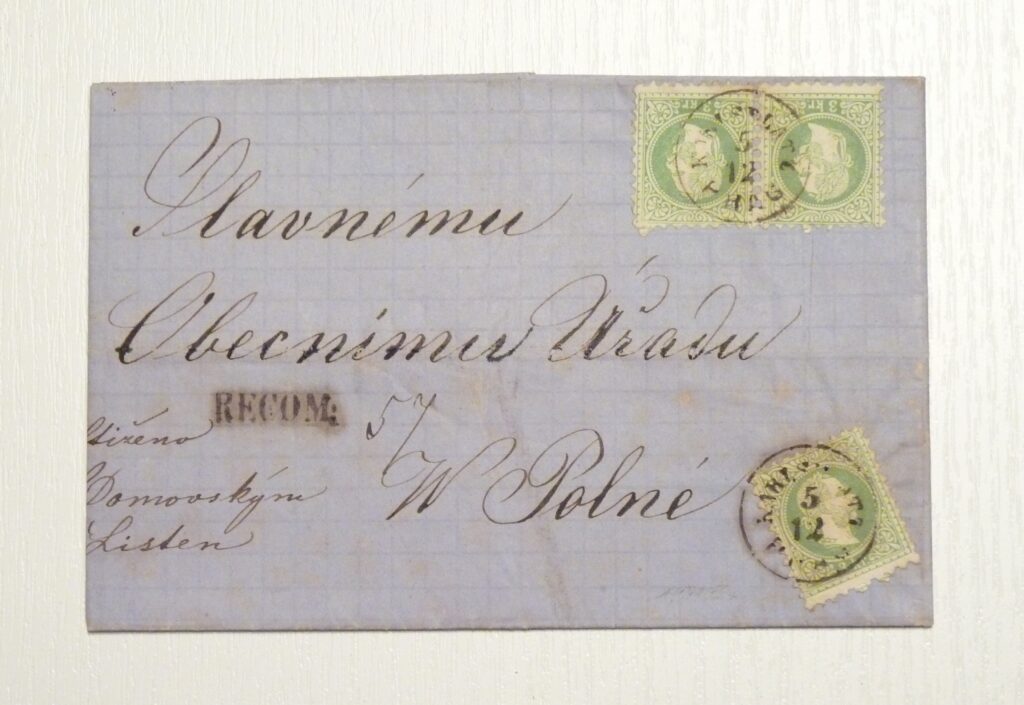 3 kr 3 kr
5
12
PRAG
Slavnému
Obecnimu Úřadu
RECOM: 57
W Polné
5
12
Domovským
Listem